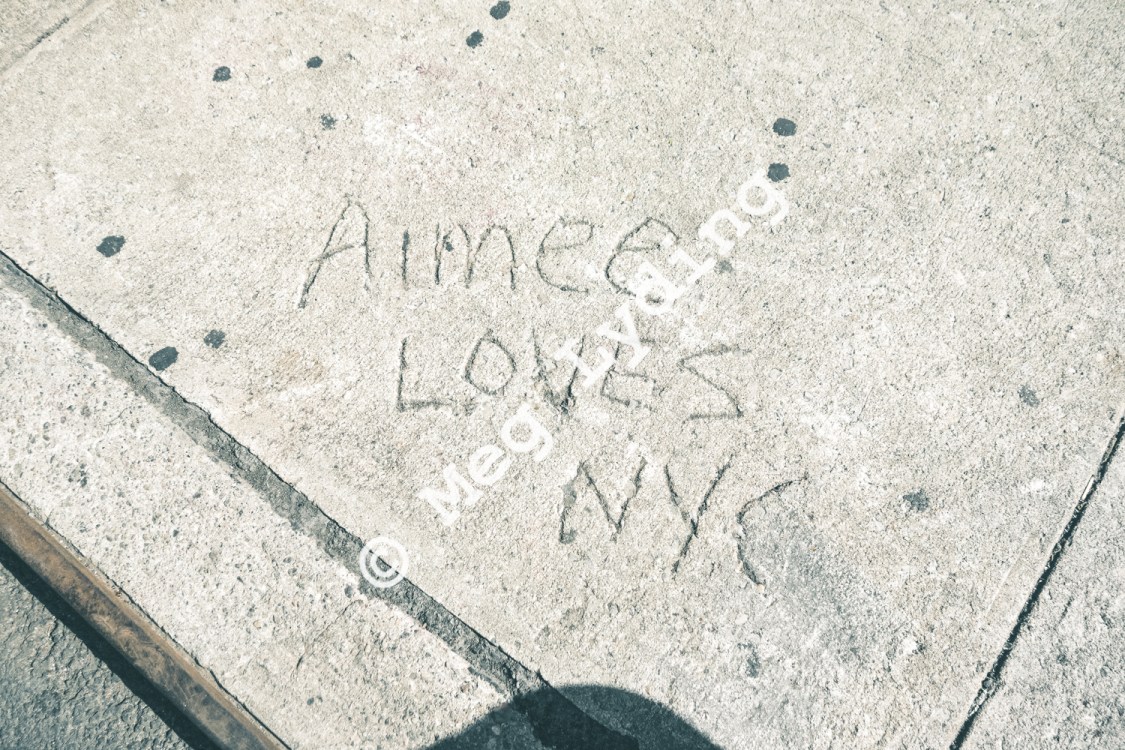 Aimee
LOVES
NYC
© Meg Lyding